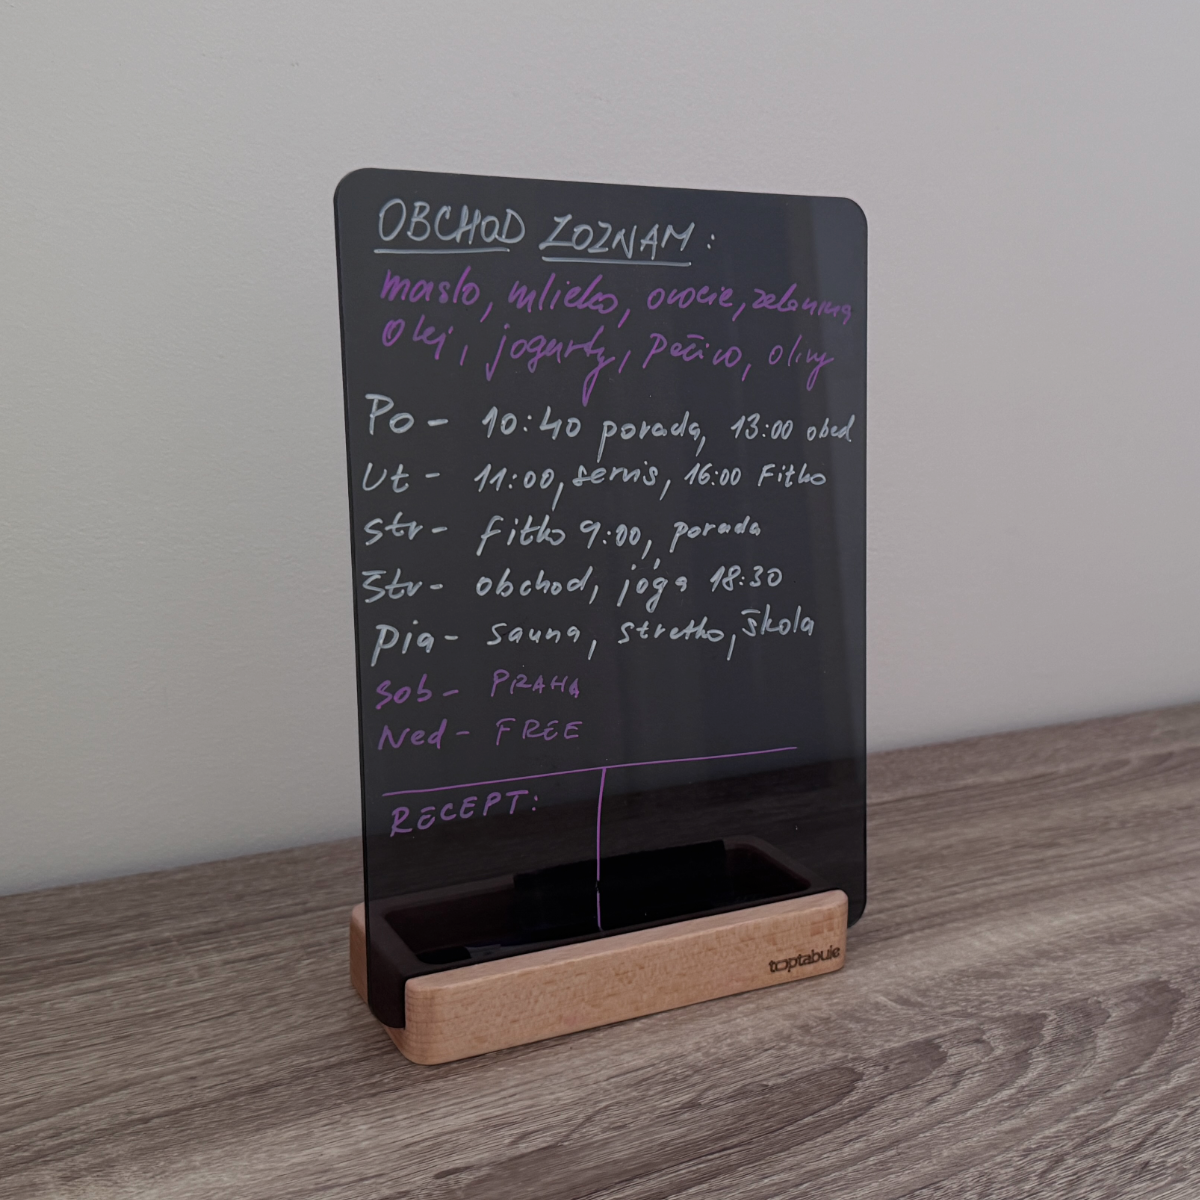 OBCHOD ZOZNAM:
maslo, mlieko, ovocie, zelenina
olej, jogurty, pečivo, olivy
Po - 10:40 porada, 13:00 obed
Ut - 11:00, servis, 16:00 Fitko
Str - fitko 9:00, porada
Štv - obchod, jóga 18:30
Pia - sauna, stretko, škola
Sob - PRAHA
Ned - FREE
RECEPT:
toptabule